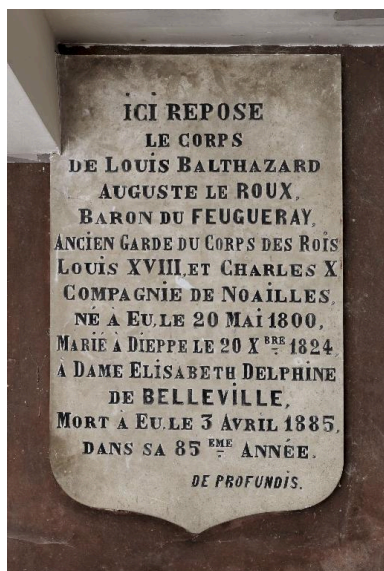 ICI REPOSE
LE CORPS
DE LOUIS BALTHAZARD
AUGUSTE LE ROUX,
BARON DU FEUGUERAY,
ANCIEN GARDE DU CORPS DES ROIS
LOUIS XVIII, ET CHARLES X
COMPAGNIE DE NOAILLES,
NÉ À EU. LE 20 MAI 1800,
MARIÉ À DIEPPE LE 20 X BRE 1824
À DAME ELISABETH DELPHINE
DE BELLEVILLE,
MORT À EU. LE 3 AVRIL 1885,
DANS SA 85 EME ANNÉE.
DE PROFUNDIS.